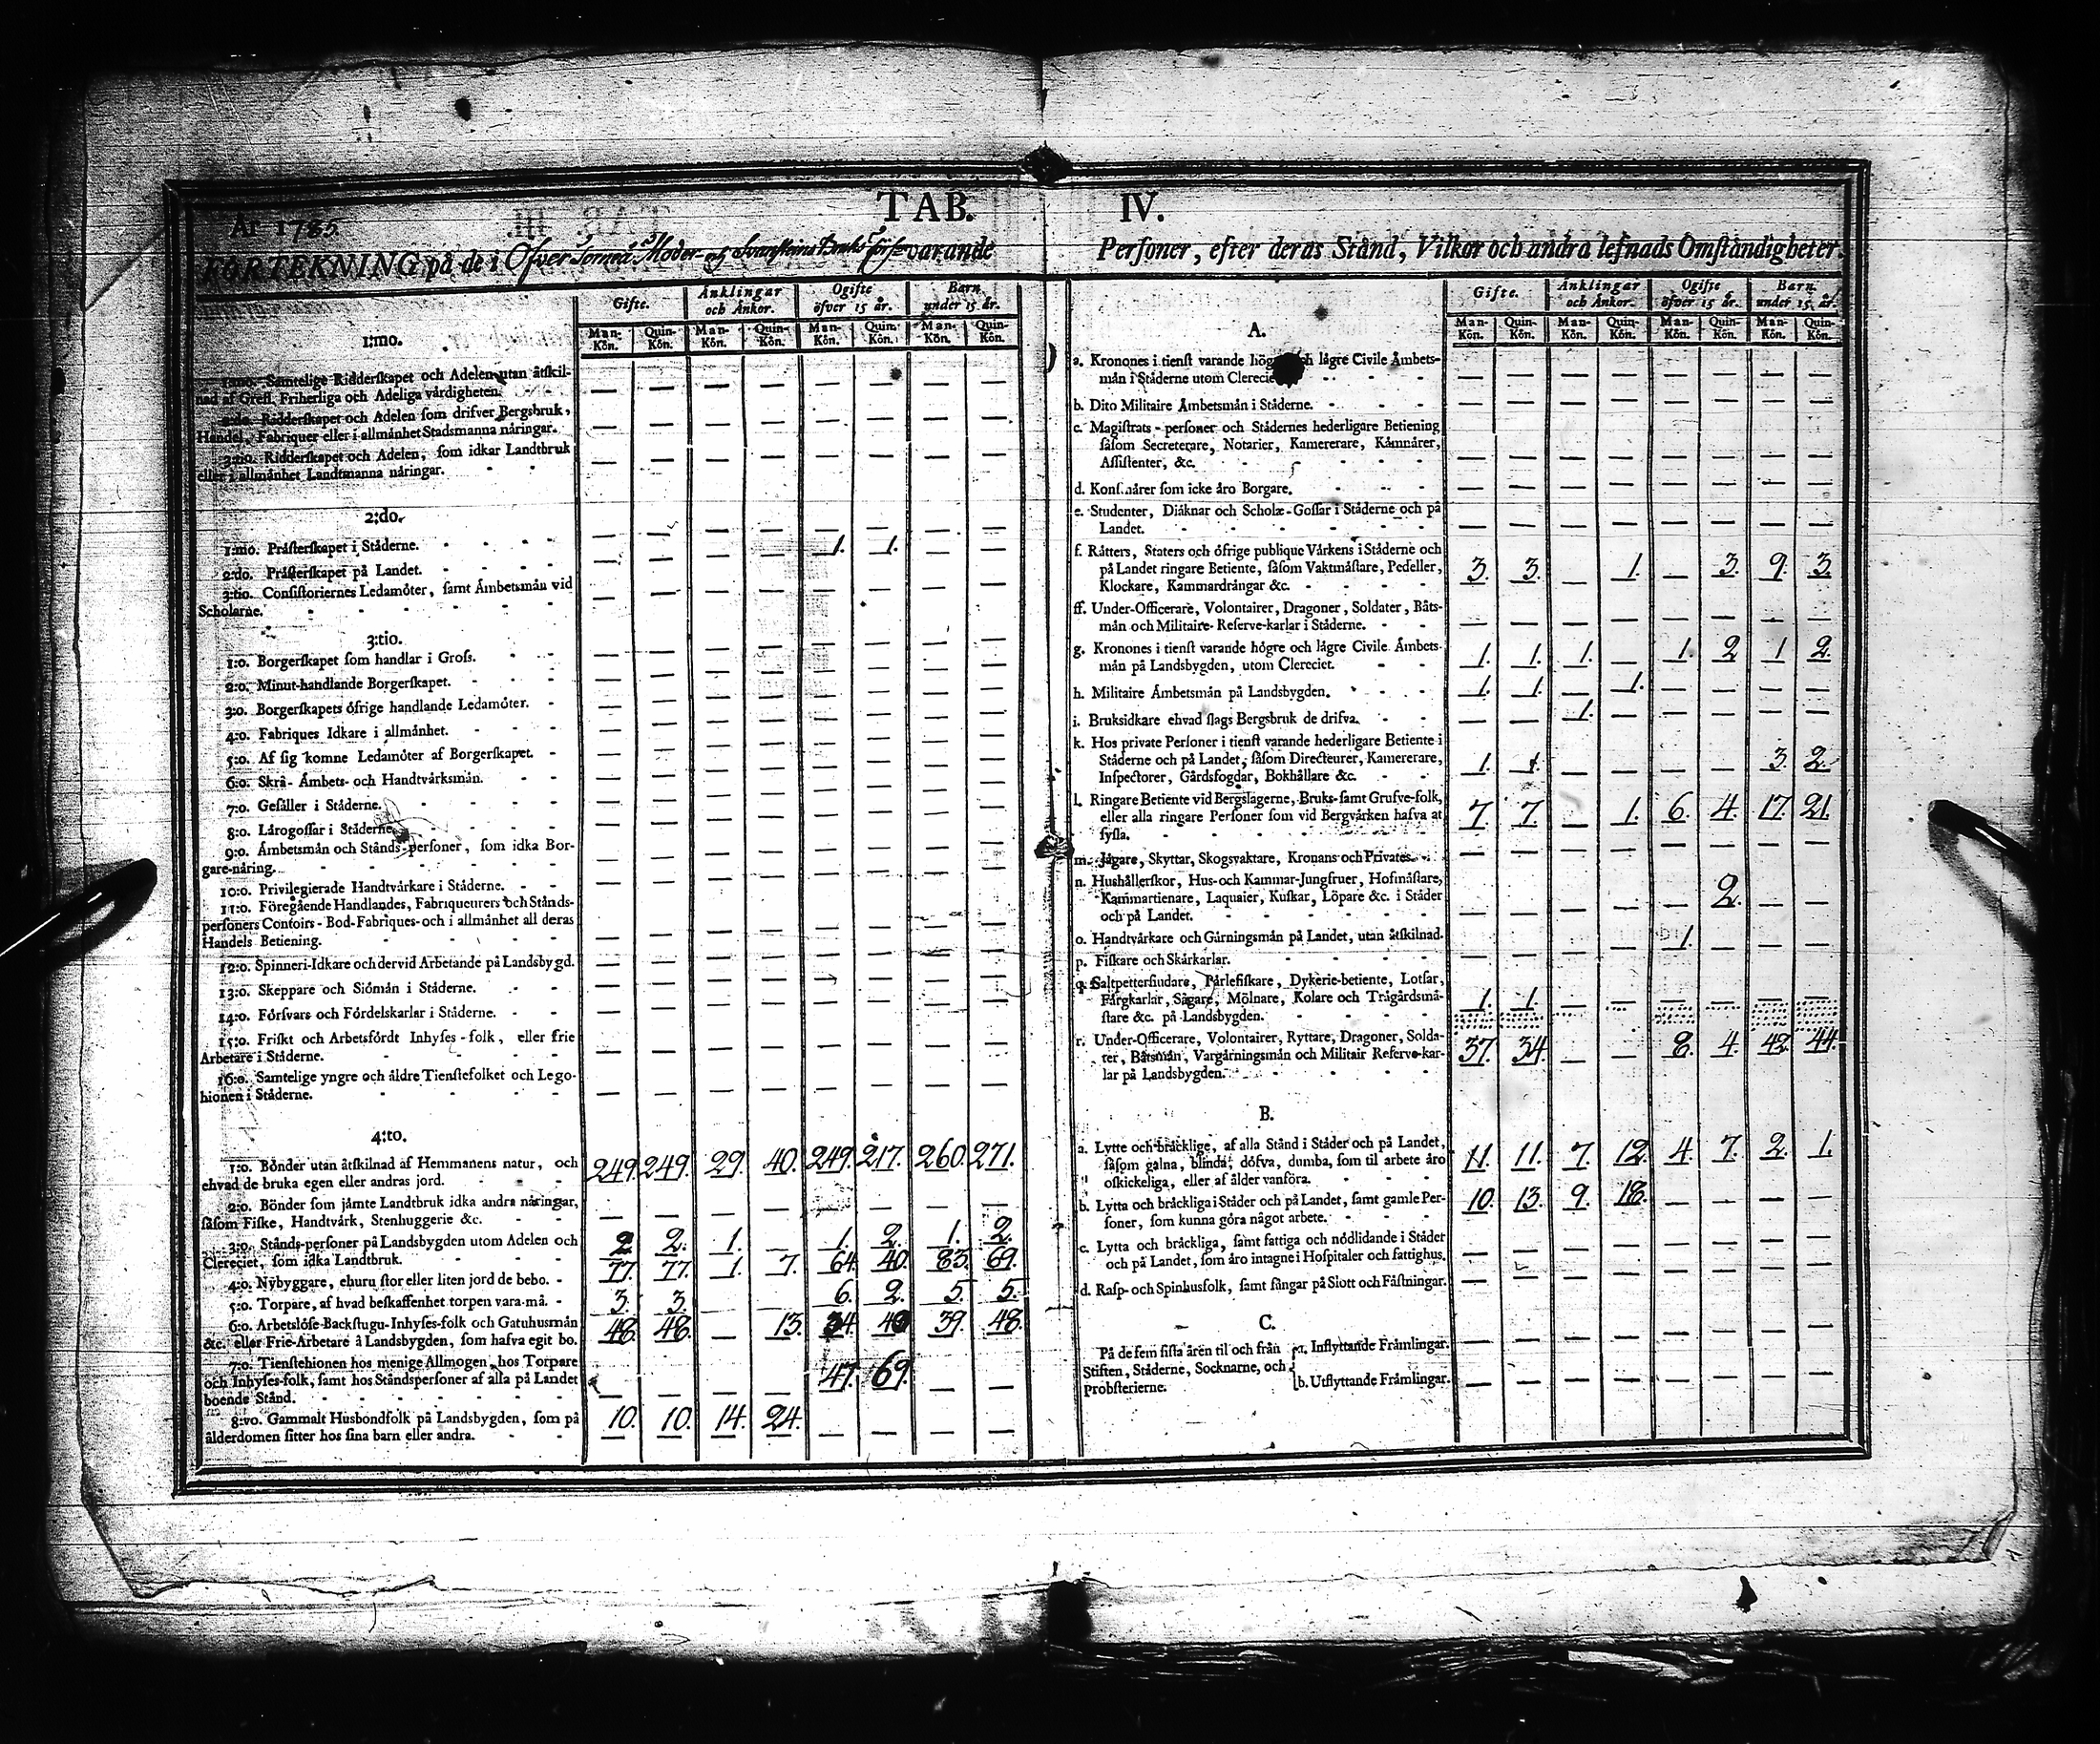 TAB. IV.
År 1785.
FÖRTEKNING på de i Öfver Torneå Moder- och Svansteins Bruks Förs. varande Personer, efter deras Stånd, Vilkor och andra lefnads Omståndigheter.
Gifte. Änklingar och Änkor. Ogifte öfver 15 år. Barn under 15 år.
Man-Kön. Quin-Kön. Man-Kön. Quin-Kön. Man-Kön. Quin-Kön. Man-Kön. Quin-Kön.
1:mo.
1:mo. Samtelige Ridderskapet och Adelen utan åtskil-
nad af Grefl. Friherliga och Adeliga vårdigheten. — — — — — — — —
2:do. Ridderskapet och Adelen som drifver Bergsbruk,
Handel, Fabriquer eller i allmånhet Stadsmanna nåringar. — — — — — — — —
3:tio. Ridderskapet och Adelen, som idkar Landtbruk
eller i allmånhet Landtmanna nåringar. — — — — — — — —
2:do.
1:mo. Pråsterskapet i Ståderne. — — — — — — — —
2:do. Pråsterskapet på Landet. — — — — 1. 1. — —
3:tio. Consistoriernes Ledamöter, samt Åmbetsmån vid
Scholarne. — — — — — — — —
3:tio.
1:o. Borgerskapet som handlar i Gross. — — — — — — — —
2:o. Minut-handlande Borgerskapet. — — — — — — — —
3:o. Borgerskapets öfrige handlande Ledamöter. — — — — — — — —
4:o. Fabriques Idkare i allmånhet. — — — — — — — —
5:o. Af sig komne Ledamöter af Borgerskapet. — — — — — — — —
6:o. Skrå- Åmbets- och Handtvårksmån. — — — — — — — —
7:o. Gesåller i Ståderne. — — — — — — — —
8:o. Lårogossar i Ståderne. — — — — — — — —
9:o. Åmbetsmån och Stånds-personer, som idka Bor-
gare-nåring. — — — — — — — —
10:o. Privilegierade Handtvårkare i Ståderne. — — — — — — — —
11:o. Föregående Handlandes, Fabriqueurers och Stånds-
personers Contoirs-Bod-Fabriques- och i allmånhet all deras
Handels Betiening. — — — — — — — —
12:o. Spinneri-Idkare och dervid Arbetande på Landsbygd. — — — — — — — —
13:o. Skeppare och Siömån i Ståderne. — — — — — — — —
14:o. Försvars och Fördelskarlar i Ståderne. — — — — — — — —
15:o. Friskt och Arbetsfördt Inhyses-folk, eller frie
Arbetare i Ståderne. — — — — — — — —
16:o. Samtelige yngre och åldre Tienstefolket och Lego-
hionen i Ståderne. — — — — — — — —
4:to.
1:o. Bönder utan åtskilnad af Hemmanens natur, och
ehvad de bruka egen eller andras jord. 249. 249. 29. 40. 249. 217. 260. 271.
2:o. Bönder som jåmte Landtbruk idka andra nåringar,
såsom Fiske, Handtvårk, Stenhuggerie &c. — — — — — — — —
3:o. Stånds-personer på Landsbygden utom Adelen och
Clereciet, som idka Landtbruk. 2. 2. 1. — 1. 2. 1. 2.
4:o. Nybyggare, ehuru stor eller liten jord de bebo. 77. 77. 1. 7. 64. 40. 83. 69.
5:o. Torpare, af hvad beskaffenhet torpen vara må. 3. 3. — — 6. 2. 5. 5.
6:o. Arbetslöse-Backstugu-Inhyses-folk och Gatuhusmån
&c. eller Frie-Arbetare å Landsbygden, som hafva egit bo. 48. 48. — 13. 34. 40 39. 48.
7:o. Tienstehionen hos menige Allmogen, hos Torpare
och Inhyses-folk, samt hos Ståndspersoner af alla på Landet
boende Stånd. — — — — 47. 69. — —
8:vo. Gammalt Husbondfolk på Landsbygden, som på
ålderdomen sitter hos sina barn eller andra. 10. 10. 14. 24. — — — —
Gifte. Änklingar och Änkor. Ogifte öfver 15 år. Barn under 15 år.
Man-Kön. Quin-Kön. Man-Kön. Quin-Kön. Man-Kön. Quin-Kön. Man-Kön. Quin-Kön.
A.
a. Kronones i tienst varande högre och lågre Civile Åmbets-
mån i Ståderne utom Clereciet — — — — — — — —
b. Dito Militaire Åmbetsmån i Ståderne. — — — — — — — —
c. Magistrats-personer och Stådernes hederligare Betiening
såsom Secreterare, Notarier, Kamererare, Kåmnårer,
Assistenter, &c. — — — — — — — —
d. Konstnårer som icke åro Borgare. — — — — — — — —
e. Studenter, Diåknar och Scholæ-Gossar i Ståderne och på
Landet. — — — — — — — —
f. Råtters, Staters och öfrige publique Vårkens i Ståderne och
på Landet ringare Betiente, såsom Vaktmåstare, Pedeller,
Klockare, Kammardrångar &c. 3. 3. — 1. — 3. 9. 3.
ff. Under-Officerare, Volontairer, Dragoner, Soldater, Båts-
mån och Militaire-Reserve-karlar i Ståderne. — — — — — — — —
g. Kronones i tienst varande högre och lågre Civile Åmbets-
mån på Landsbygden, utom Clereciet. 1. 1. 1. — 1. 2 1 2.
h. Militaire Åmbetsmån på Landsbygden. 1. 1. — 1. — — — —
i. Bruksidkare ehvad slags Bergsbruk de drifva. — — 1. — — — — —
k. Hos private Personer i tienst varande hederligare Betiente i
Ståderne och på Landet, såsom Directeurer, Kamererare,
Inspectorer, Gårdsfogdar, Bokhållare &c. 1. 1. — — — — 3. 2.
l. Ringare Betiente vid Bergslagerne, Bruks- samt Grufve-folk,
eller alla ringare Personer som vid Bergvårken hafva at
syssla. 7. 7. — 1. 6. 4. 17. 21.
m. Jågare, Skyttar, Skogsvaktare, Kronans och Privates. — — — — — — — —
n. Hushållerskor, Hus- och Kammar-Jungfruer, Hofmåstare,
Kammartienare, Laquaier, Kuskar, Löpare &c. i Ståder
och på Landet. — — — — — 2. — —
o. Handtvårkare och Gårningsmån på Landet, utan åtskilnad. — — — — 1. — — —
p. Fiskare och Skårkarlar. — — — — — — — —
q. Saltpettersiudare, Pårlefiskare, Dykerie-betiente, Lotsar,
Fårgkarlar, Sågare, Mölnare, Kolare och Trågårdsmå-
stare &c. på Landsbygden. 1. 1. — — — — — —
r. Under-Officerare, Volontairer, Ryttare, Dragoner, Solda-
ter, Båtsmån, Vargårningsmån och Militair Reserve-kar-
lar på Landsbygden. 37. 34. — — 8. 4. 42. 44.
B.
a. Lytte och bråcklige, af alla Stånd i Ståder och på Landet,
såsom galna, blinda, döfva, dumba, som til arbete åro
oskickeliga, eller af ålder vanföra. 11. 11. 7. 12. 4. 7. 2. 1.
b. Lytta och bråckliga i Ståder och på Landet, samt gamle Per-
soner, som kunna göra något arbete. 10. 13. 9. 18. — — — —
c. Lytta och bråckliga, samt fattiga och nödlidande i Ståder
och på Landet, som åro intagne i Hospitaler och fattighus. — — — — — — — —
d. Rasp- och Spinhusfolk, samt fångar på Slott och Fåstningar. — — — — — — — —
C.
På de fem sista åren til och från
Stiften, Ståderne, Socknarne, och
Probsterierne.
a. Inflyttande Fråmlingar. — — — — — — — —
b. Utflyttande Fråmlingar. — — — — — — — —